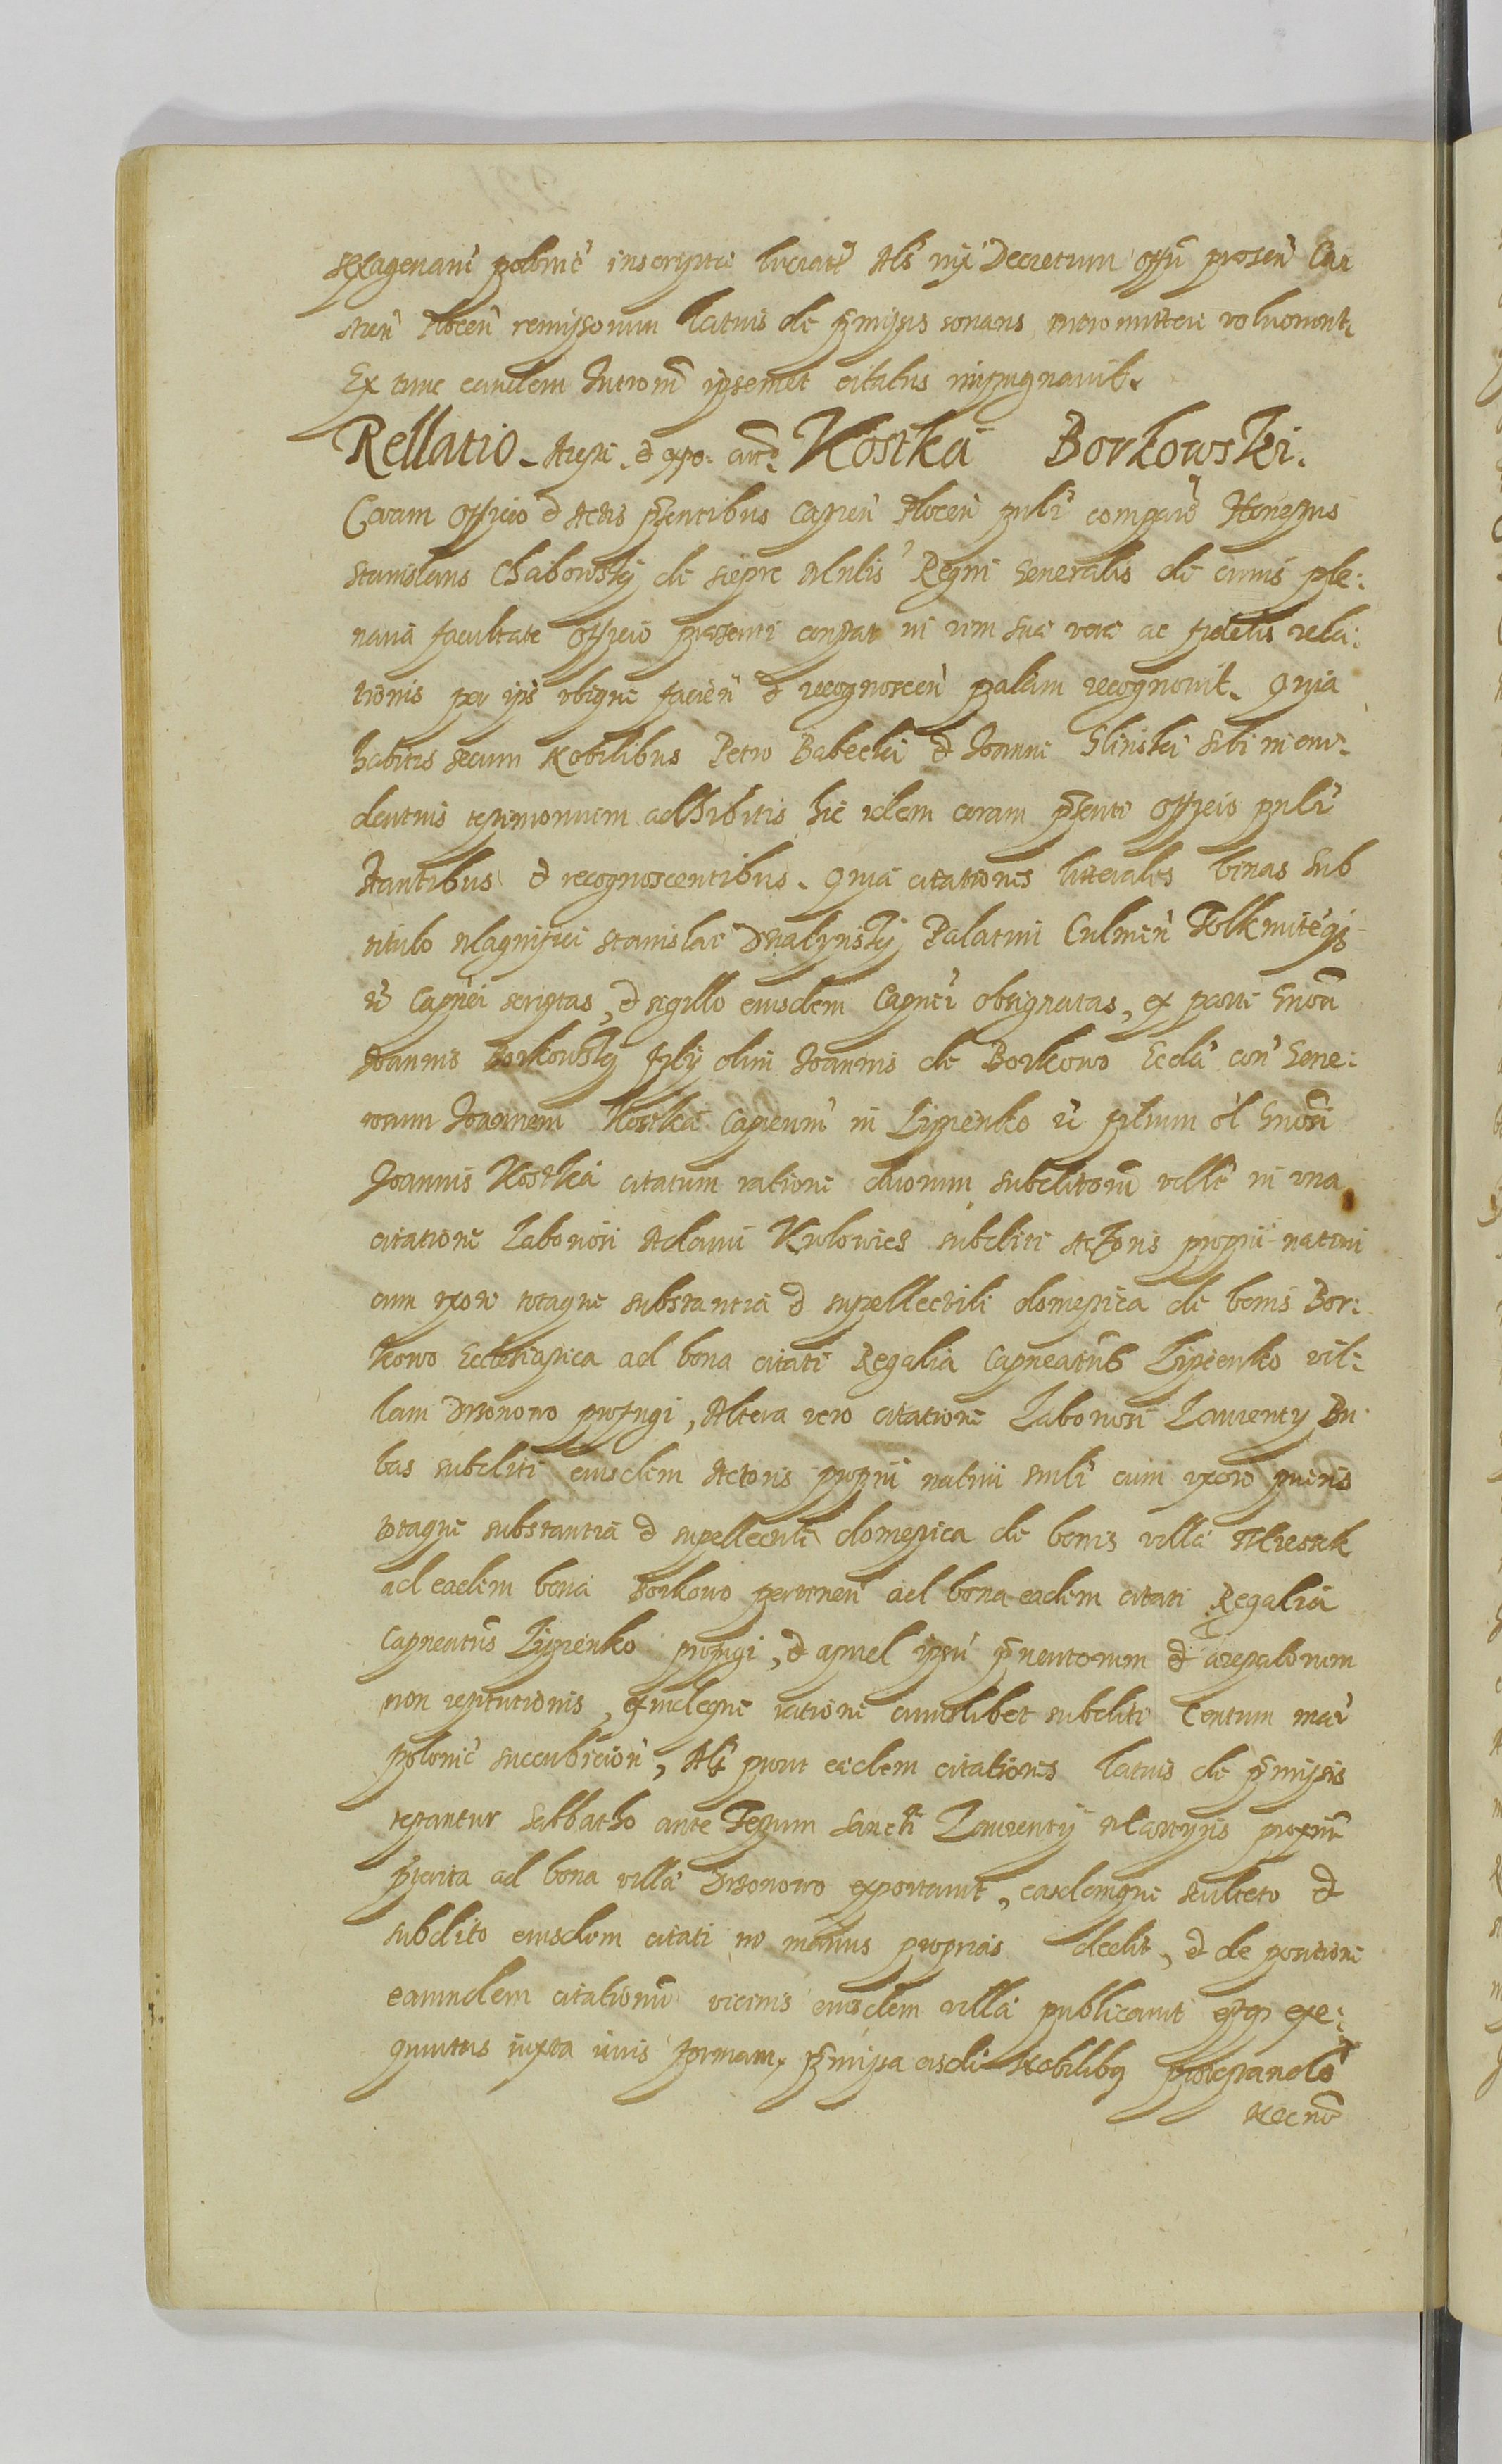 sexagenarū polonic̄ inscripta lucratu Als̄ iux̄ Decretum off̄ii presen̄ Cas
tren̄ Plocen̄ remissorium latius de p̄missis sonans intromittere voluerunt.
Ex tunc eandem Introm̄ ipsemet citatus impugnavit.
Rellatio Arest. & expo. cit. Kostka Borkowski.
Coram Officio & Actis p̄sentibus Capten̄ Plocen̄ pn̄li compar̄s Honestus
Stanislaus Chabowskÿ de Sieprc Mnlis Regni Generalis de cuius ple:
naria facultate officio praesenti constat in vim suae verae ac fidelis rela:
tionis per ips̄ ubique facien̄ & recognoscen̄ palam recognovit. Quia
habitis secum Nobilibus Petro Babecki & Joanne Slinski sibi in evi:
dentius testimonium adhibitis hic idem coram p̄senti officio pn̄li
stantibus & recognoscentibus. Quia citationes litterales binas sub
titulo Magnifici Stanislai Dzialynskÿ Palatini Culmen̄ Tolkmiteq̄
&̄ Captnei scriptas, & sigillo eiusdem Captnei obsignatas, ex parte Gn̄osi
Joannis Borkowskÿ filÿ olim Joannis de Borkowo Eccl̄a con̄ Gene:
rosum Joannem Kostka Captneum̄ in Lipienko &̄ filium ol̄ Gn̄osi
Joannis Kostka citatum ratione duorum subditorū videl̄t in una
citatione Laboriosi Adami Krolowicz subditi Actoris proprii nativi
cum uxore totaque substantia & supellectili domestica de bonis Bor:
kowo Ecclesiastica ad bona citati Regalia Capneatus Lipienko vil:
lam profugi, Altera vero citatione Laboriosi Laurenty Bu
bas subditi eiusdem Actoris proprii nativi smli cum uxore pueris
totaque substantia & supellectili domestica de bonis villa
ad eadem bona Borkowo pertinen̄ ad bona eadem citati Regalia
Capneatus Lipienko profugi, & apud ips̄u p̄ventorum & arestatorum
non restitutionis, exindeque ratione cuiuslibet subditi Centum mar̄
polonic̄ succubicion̄, Als̄ prout eaedem citationes latius de p̄missis
testantur Sabbatho ante Festum Sancti Laurentÿ Martyris proxime
p̄terita ad bona villa exportavit, easdemque sculteto &
subdito eiusdem citati in manus proprias dedit, & de positione
earundem citationū vicinis eiusdem villa publicavit est exe:
quutus iuxta iuris formam, p̄missa eisde Nobilibq protestando
Nec nō